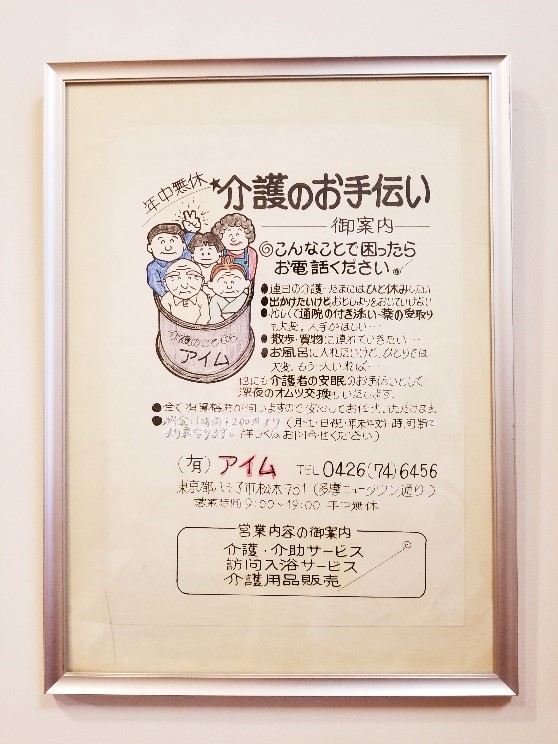 年中無休
★介護のお手伝い
御案内
◎こんなことで困ったら
お電話ください。
●連日の介護・たまにはひと休みしたい
●出かけたいけどおとしよりをおいていけない
●忙しくて通院の付き添い・薬の受取り
も大変。人手がほしい…
●散歩・買物に連れていきたい…
●お風呂に入れたいけど、ひとりでは
大変。もう一人いれば…
他にも介護者の安眠のお手伝いとして
深夜のオムツ交換もいたします。
●全て有資格者が伺いますので安心してお任せいただけます。
●料金は1時間 より (月~土・日・祝・年末年始) 時間帯で
より異なります。(詳しくはお問合せください)
介護のことなら
アイム
(有) アイム TEL 0426(74)6456
東京都八王子市松木761 (多摩ニュータウン通り)
営業時間 9:00~19:00 年中無休
営業内容の御案内
介護・介助サービス
訪問入浴サービス
介護用品販売